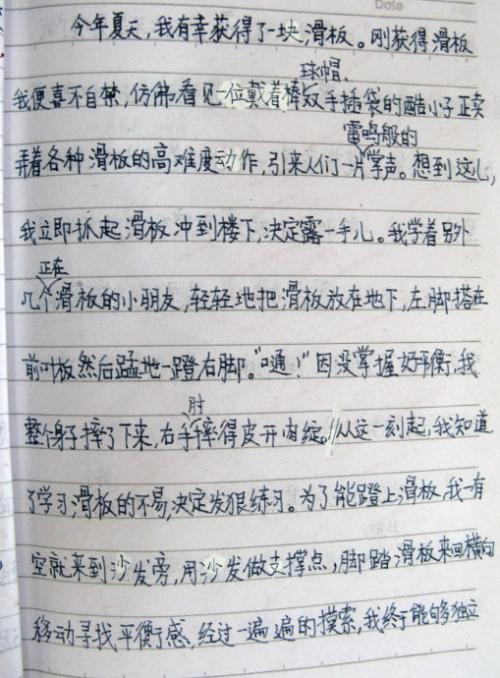 Date
今年夏天，我有幸获得了一块滑板。刚获得滑板
我便喜不自禁，仿佛看见一位戴着棒球帽、双手插袋的酷小子正卖
弄着各种滑板的高难度动作，引来人们一片雷鸣般的掌声。想到这儿，
我立即抓起滑板冲到楼下，决定露一手儿。我学着另外
几个正在滑板的小朋友，轻轻地把滑板放在地下，左脚搭在
前叶板然后猛地一蹬右脚。"嗵！"因没掌握好平衡，我
整个身子摔了下来，右手肘摔得皮开肉绽。从这一刻起，我知道
了学习滑板的不易，决定发狠练习。为了能蹬上滑板，我一有
空就来到沙发旁，用沙发做支撑点，脚踏滑板来回横向
移动寻找平衡感，经过一遍遍的摸索，我终于能够独立